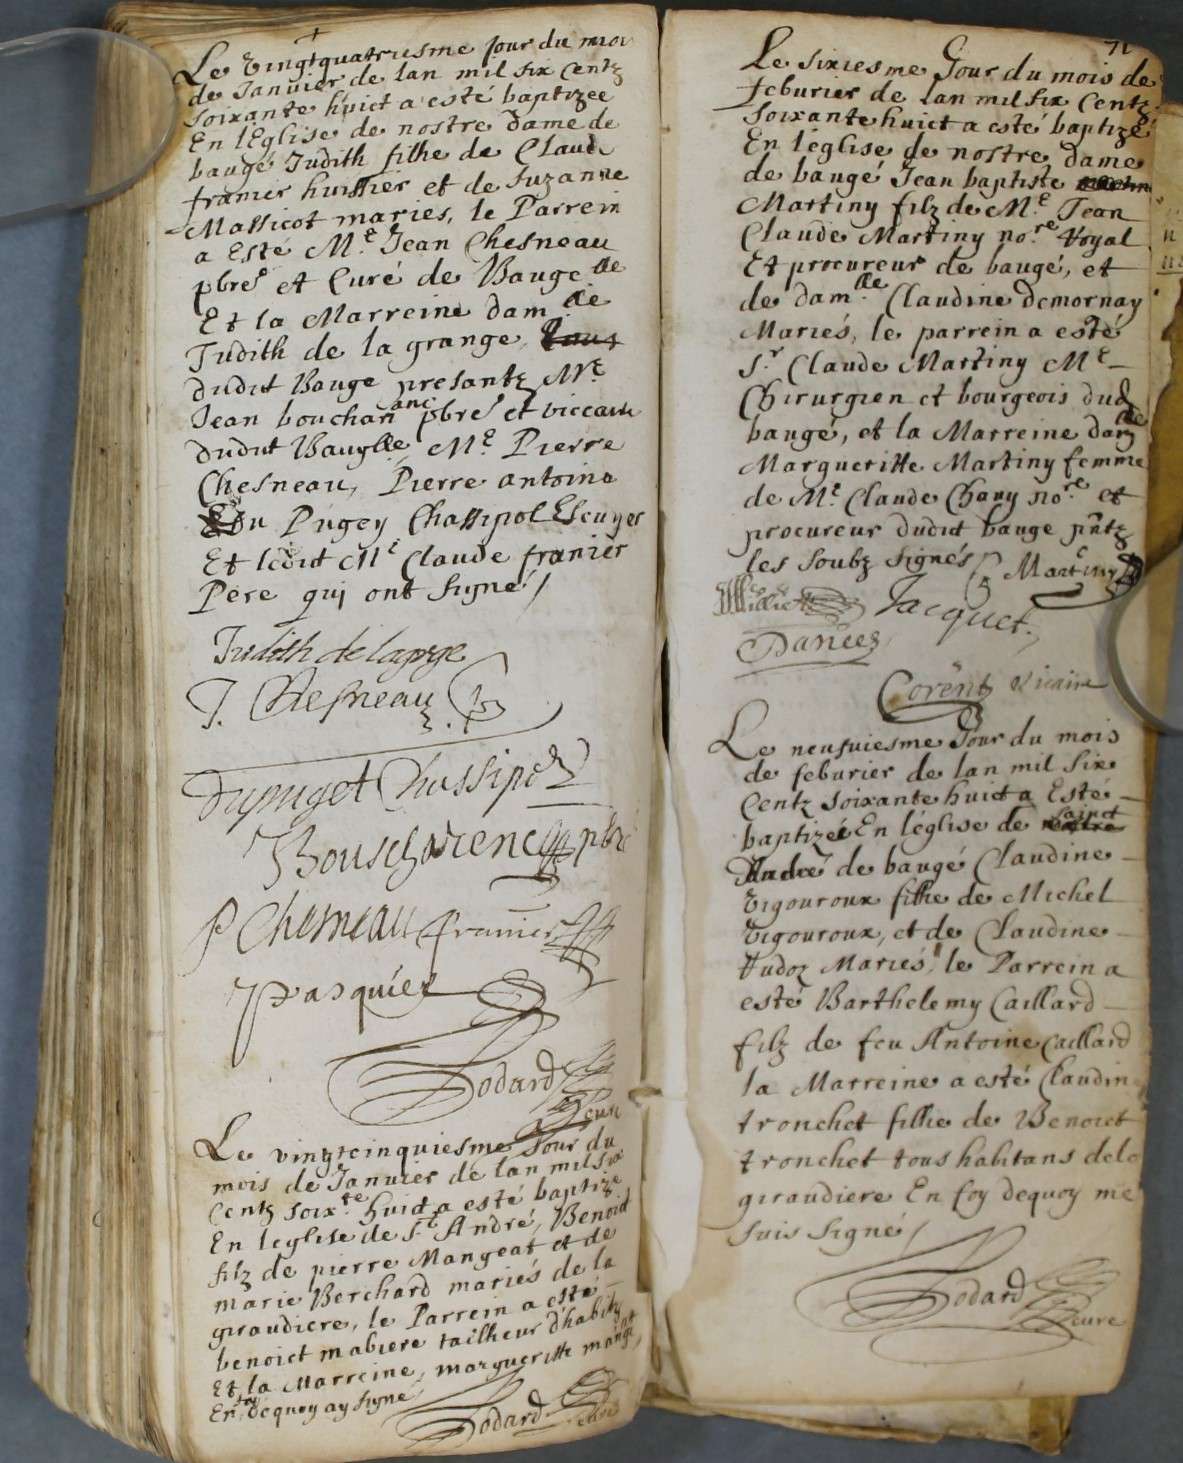 Le vingtquatriesme Jour du mois
de Januier de lan mil six Centz
soixante huict a esté baptizee
En lEglise de nostre dame de
baugé Judith filhe de Claude
franier huissier et de Suzanne
Massicot mariés, le Parrein
a Esté Me. Jean Chesneau
pbre et Curé de Bauge
Et la Marreine damlle
Judith de la grange,
dudit Bauge presantz Mre
Jean bouchar anc pbre et viccaire
dudit Baugé, Me. Pierre
Chesneau, Pierre antoine
Du Pugey Chassipol Escuyer
Et ledit Me Claude franier
Pere quj ont signé /
Judith de lagrge
J. Chesneau
dupuget Chassipol
Bouscharenc pbre
P Chesneau franier
Pasquier
Dodard
Curé
Le vingtcinquiesme Jour du
mois de Januier de lan mil six
Centz soixte. huict a esté baptizé
En leglise de St André, Benoict
filz de pierre Mangeat et de
marie Berchard mariés de la
giraudiere, le Parrein a esté
benoict mabiere tailheur d'habitz
Et la Marreine, margueritte mangeat
En foy dequoy ay signé
Dodard Curé
71
Le sixiesme Jour du mois de
feburier de lan mil six Centz
soixante huict a esté baptizé
En l'église de nostre dame
de baugé Jean baptiste
Martiny filz de Me. Jean
Claude Martiny nore. Royal
Et procureur de baugé, et
de damlle. Claudine demornay
Mariés, le parrein a esté
Sr. Claude Martiny Me
Chirurgien et bourgeois dud
baugé, et la Marreine damlle
Margueritte Martiny femme
de Me. Claude Chauy nore. et
procureur dudit bauge pntz
les soubz signés / Martiny
Jacquet.
Daniez
Corentz Vicaire
Le neufuiesme Jour du mois
de feburier de lan mil six
Centz soixante huict a Esté
baptizée En léglise de sainct
Andre de baugé Claudine
Vigouroux filhe de Michel
Vigouroux, et de Claudine
Tudoz Mariés, le Parrein a
esté Barthelemy Caillard
filz de feu Antoine Caillard
la Marreine a esté Claudine
tronchet fillie de Benoict
tronchet tous habitans dela
giraudiere En foy dequoy me
suis signé /
Dodard
Curé